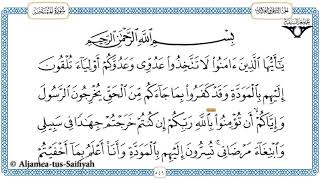 بِسْمِ اللَّهِ الرَّحْمَٰنِ الرَّحِيمِ
يَا أَيُّهَا الَّذِينَ آمَنُوا لَا تَتَّخِذُوا عَدُوِّي وَعَدُوَّكُمْ أَوْلِيَاءَ تُلْقُونَ
إِلَيْهِم بِالْمَوَدَّةِ وَقَدْ كَفَرُوا بِمَا جَاءَكُم مِّنَ الْحَقِّ يُخْرِجُونَ الرَّسُولَ
وَإِيَّاكُمْ أَن تُؤْمِنُوا بِاللَّهِ رَبِّكُمْ إِن كُنتُمْ خَرَجْتُمْ جِهَادًا فِي سَبِيلِي
وَابْتِغَاءَ مَرْضَاتِي تُسِرُّونَ إِلَيْهِم بِالْمَوَدَّةِ وَأَنَا أَعْلَمُ بِمَا أَخْفَيْتُمْ
© Aljamea-tus-Saifiyah
٥٤٩